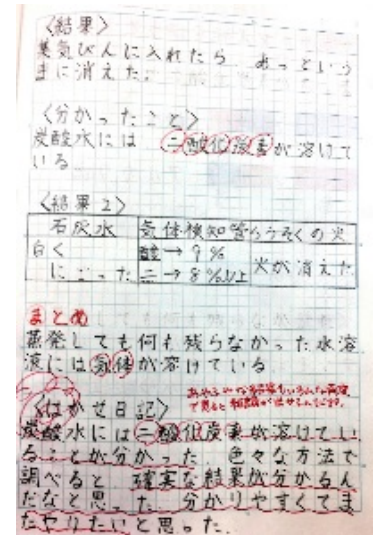 〈結果〉
集気びんに入れたら あっという
まに消えた。
〈分かったこと〉
炭酸水には 二酸化炭素が溶けて
いる
〈結果2〉
石灰水 気体検知管 ろうそくの火
白く 酸→9% 火が消えた
にごった 二→8%以上
まとめ
蒸発しても何も残らなかった水溶
液には気体が溶けている
〈はかせ日記〉
炭酸水には二酸化炭素が溶けてい
ることが分かった 色々な方法で
調べると 確実な結果が分かるん
だなと思った 分かりやすくてま
たやりたいと思った。